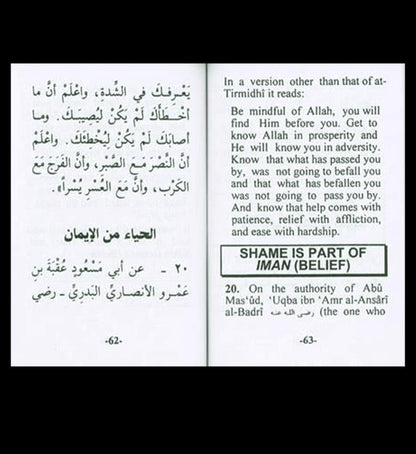 يَعْرِفكَ في الشِّدةِ، واعْلَمْ أنَّ ما
أخْطَأكَ لَمْ يَكُنْ لِيُصِيبَكَ. وما
أصابَكَ لَمْ يَكُنْ لِيُخْطِئكَ. واعْلَمْ
أنَّ النَّصْرَ مَعَ الصَّبْرِ، وأنَّ الفَرَجَ مَعَ
الكَرْبِ، وأنَّ مَعَ العُسْرِ يُسْراً».
الحياء من الإيمان
٢٠ - عن أبي مَسْعُودٍ عُقْبَةَ بنِ
عَمْرو الأنصاريِّ البَدريِّ - رضي
-62-
In a version other than that of at-
Tirmidhî it reads:
Be mindful of Allah, you will
find Him before you. Get to
know Allah in prosperity and
He will know you in adversity.
Know that what has passed you
by, was not going to befall you
and that what has befallen you
was not going to pass you by.
And know that help comes with
patience, relief with affliction,
and ease with hardship.
SHAME IS PART OF
IMAN (BELIEF)
20. On the authority of Abû
Mas'ûd, 'Uqba ibn 'Amr al-Ansârî
al-Badrî رضي الله عنه (the one who
-63-